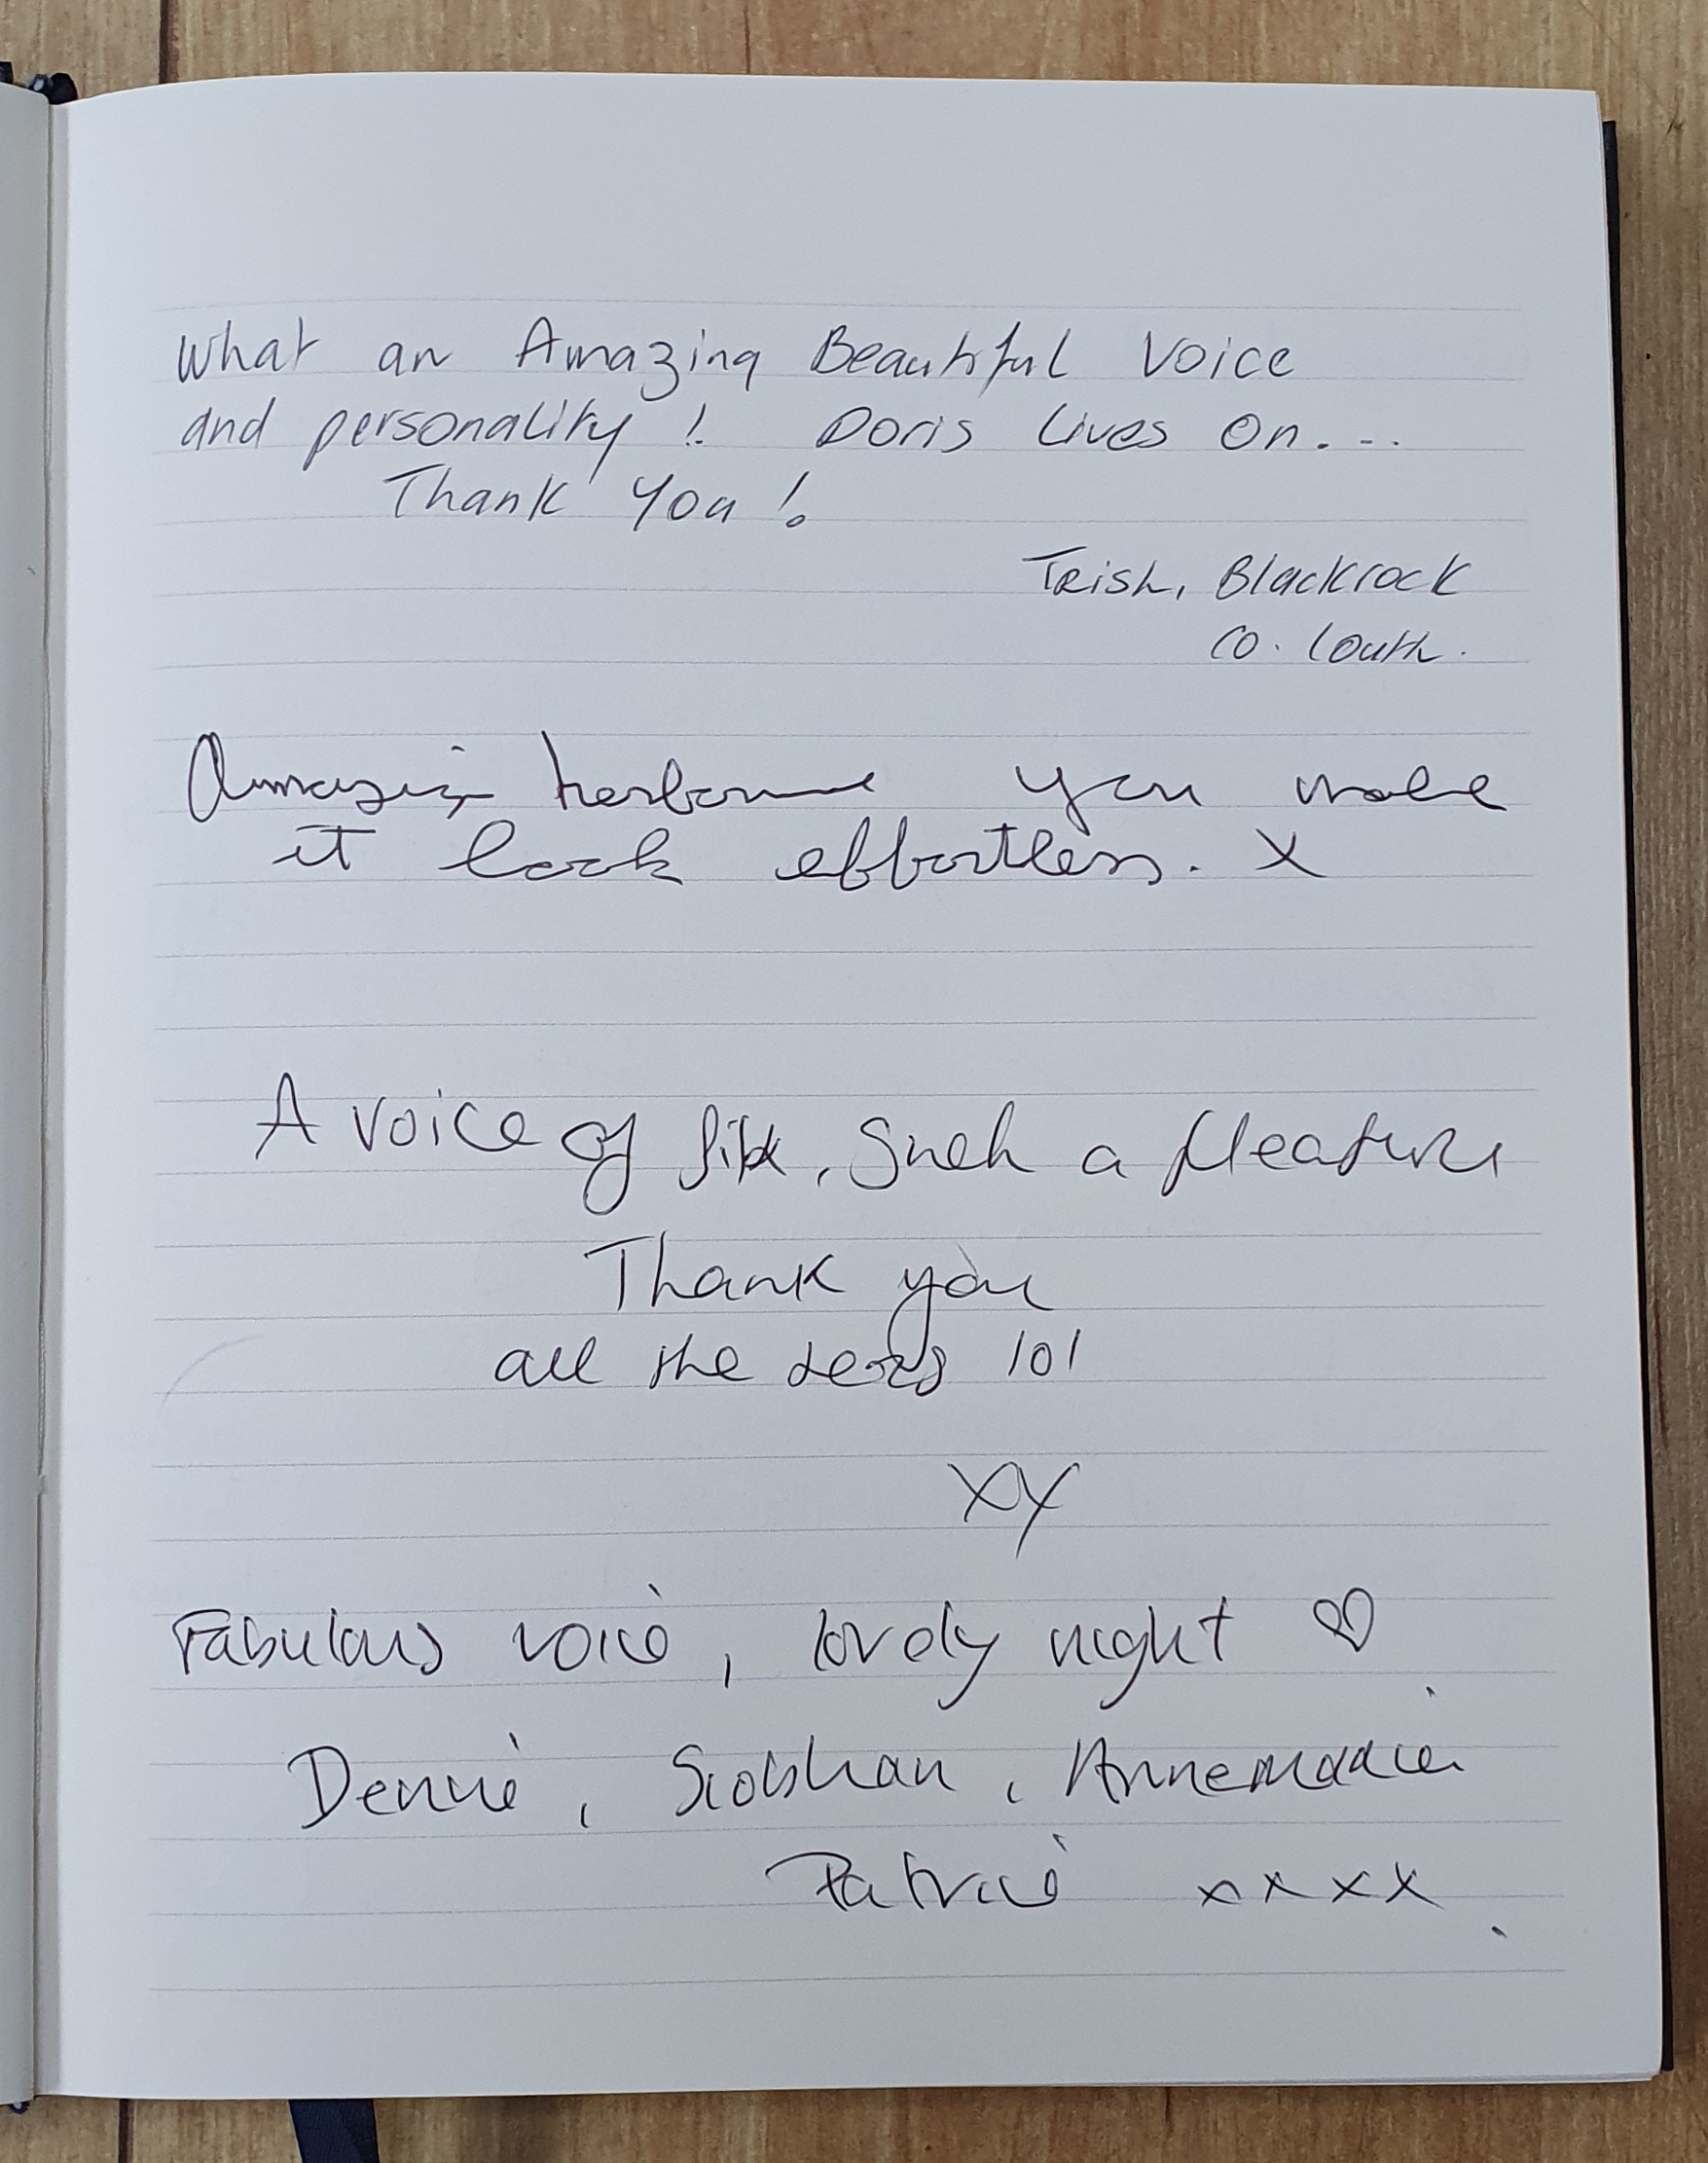 What an Amazing Beautiful Voice
and personality! Doris Lives On....
Thank You!
Trish, Blackrock
Co. Louth.
Amazing you make
it look effortless. x
A voice of silk, Such a pleasure
Thank you
all the 101
XX
Fabulous voice, lovely night ♡
Denise, Siobhan, Annemarie
Patricia xxxx